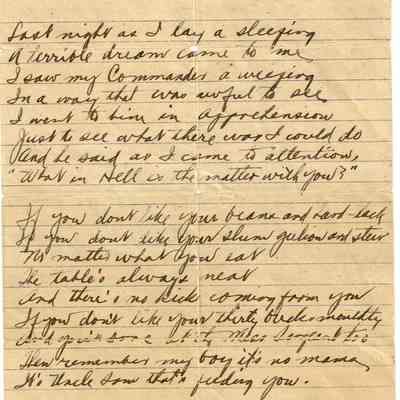 Last night as I lay a sleeping
A terrible dream came to me
I saw my Commander a weeping
In a way that was awful to see
I went to him in apprehension
Just to see what there was I could do
And he said as I came to attention,
"What in Hell is the matter with you?"
If you dont like your beans and hard-tack
If you dont like your slum gulion and stew
No matter what you eat
The table's always neat
And there's no kick coming from you
If you don't like your thirty bucks monthly
Mess Sergeant too
Then remember my boy it's no mama,
It's Uncle Sam that's feeding you.